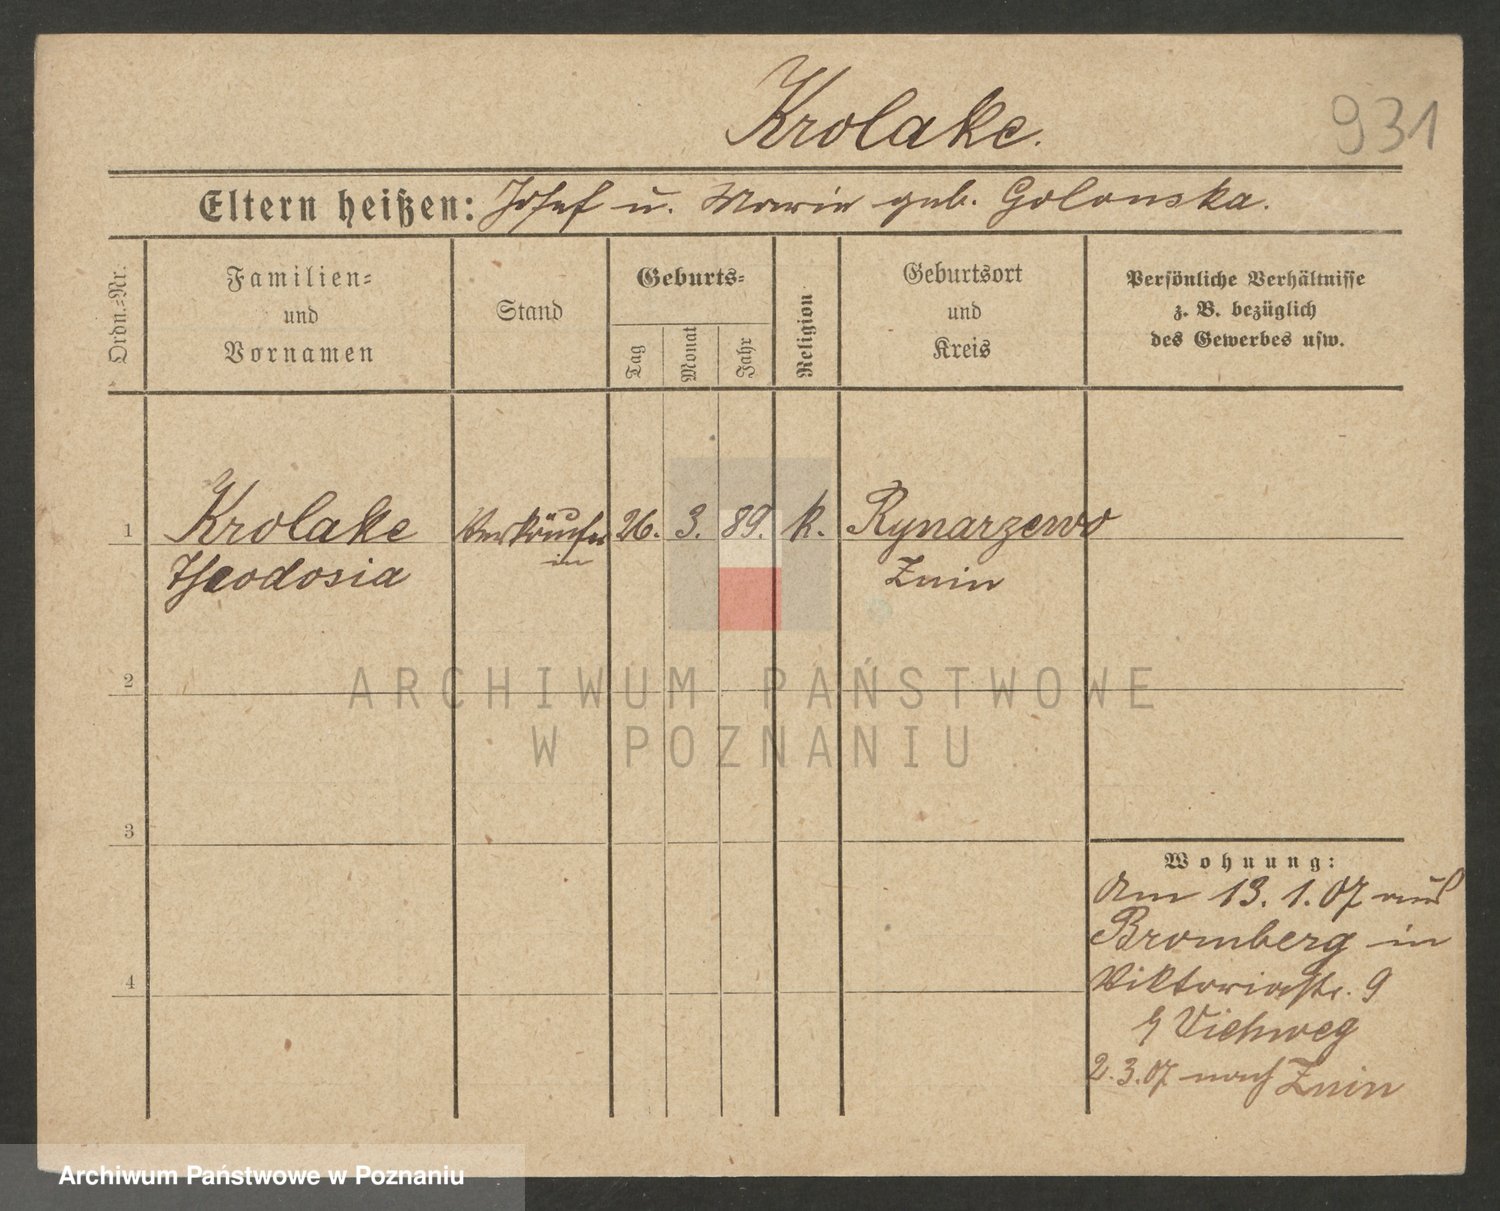 Krolake.
931
Eltern heißen: Josef u. Marie geb. Golonska.
Ordn.-Nr.
Familien-
und
Vornamen
Stand
Geburts-
Tag
Monat
Jahr
Religion
Geburtsort
und
Kreis
Persönliche Verhältnisse
z. B. bezüglich
des Gewerbes usw.
1 Krolake Verkäufer 26. 3. 89. k. Rynarzewo
in
Theodosia Znin
ARCHIWUM PAŃSTWOWE
W POZNANIU
2
3
4
Wohnung:
Am 13. 1. 07 aus
Bromberg in
Viktoriastr. 9
b/ Viehweg
2. 3. 07 nach Znin
Archiwum Państwowe w Poznaniu